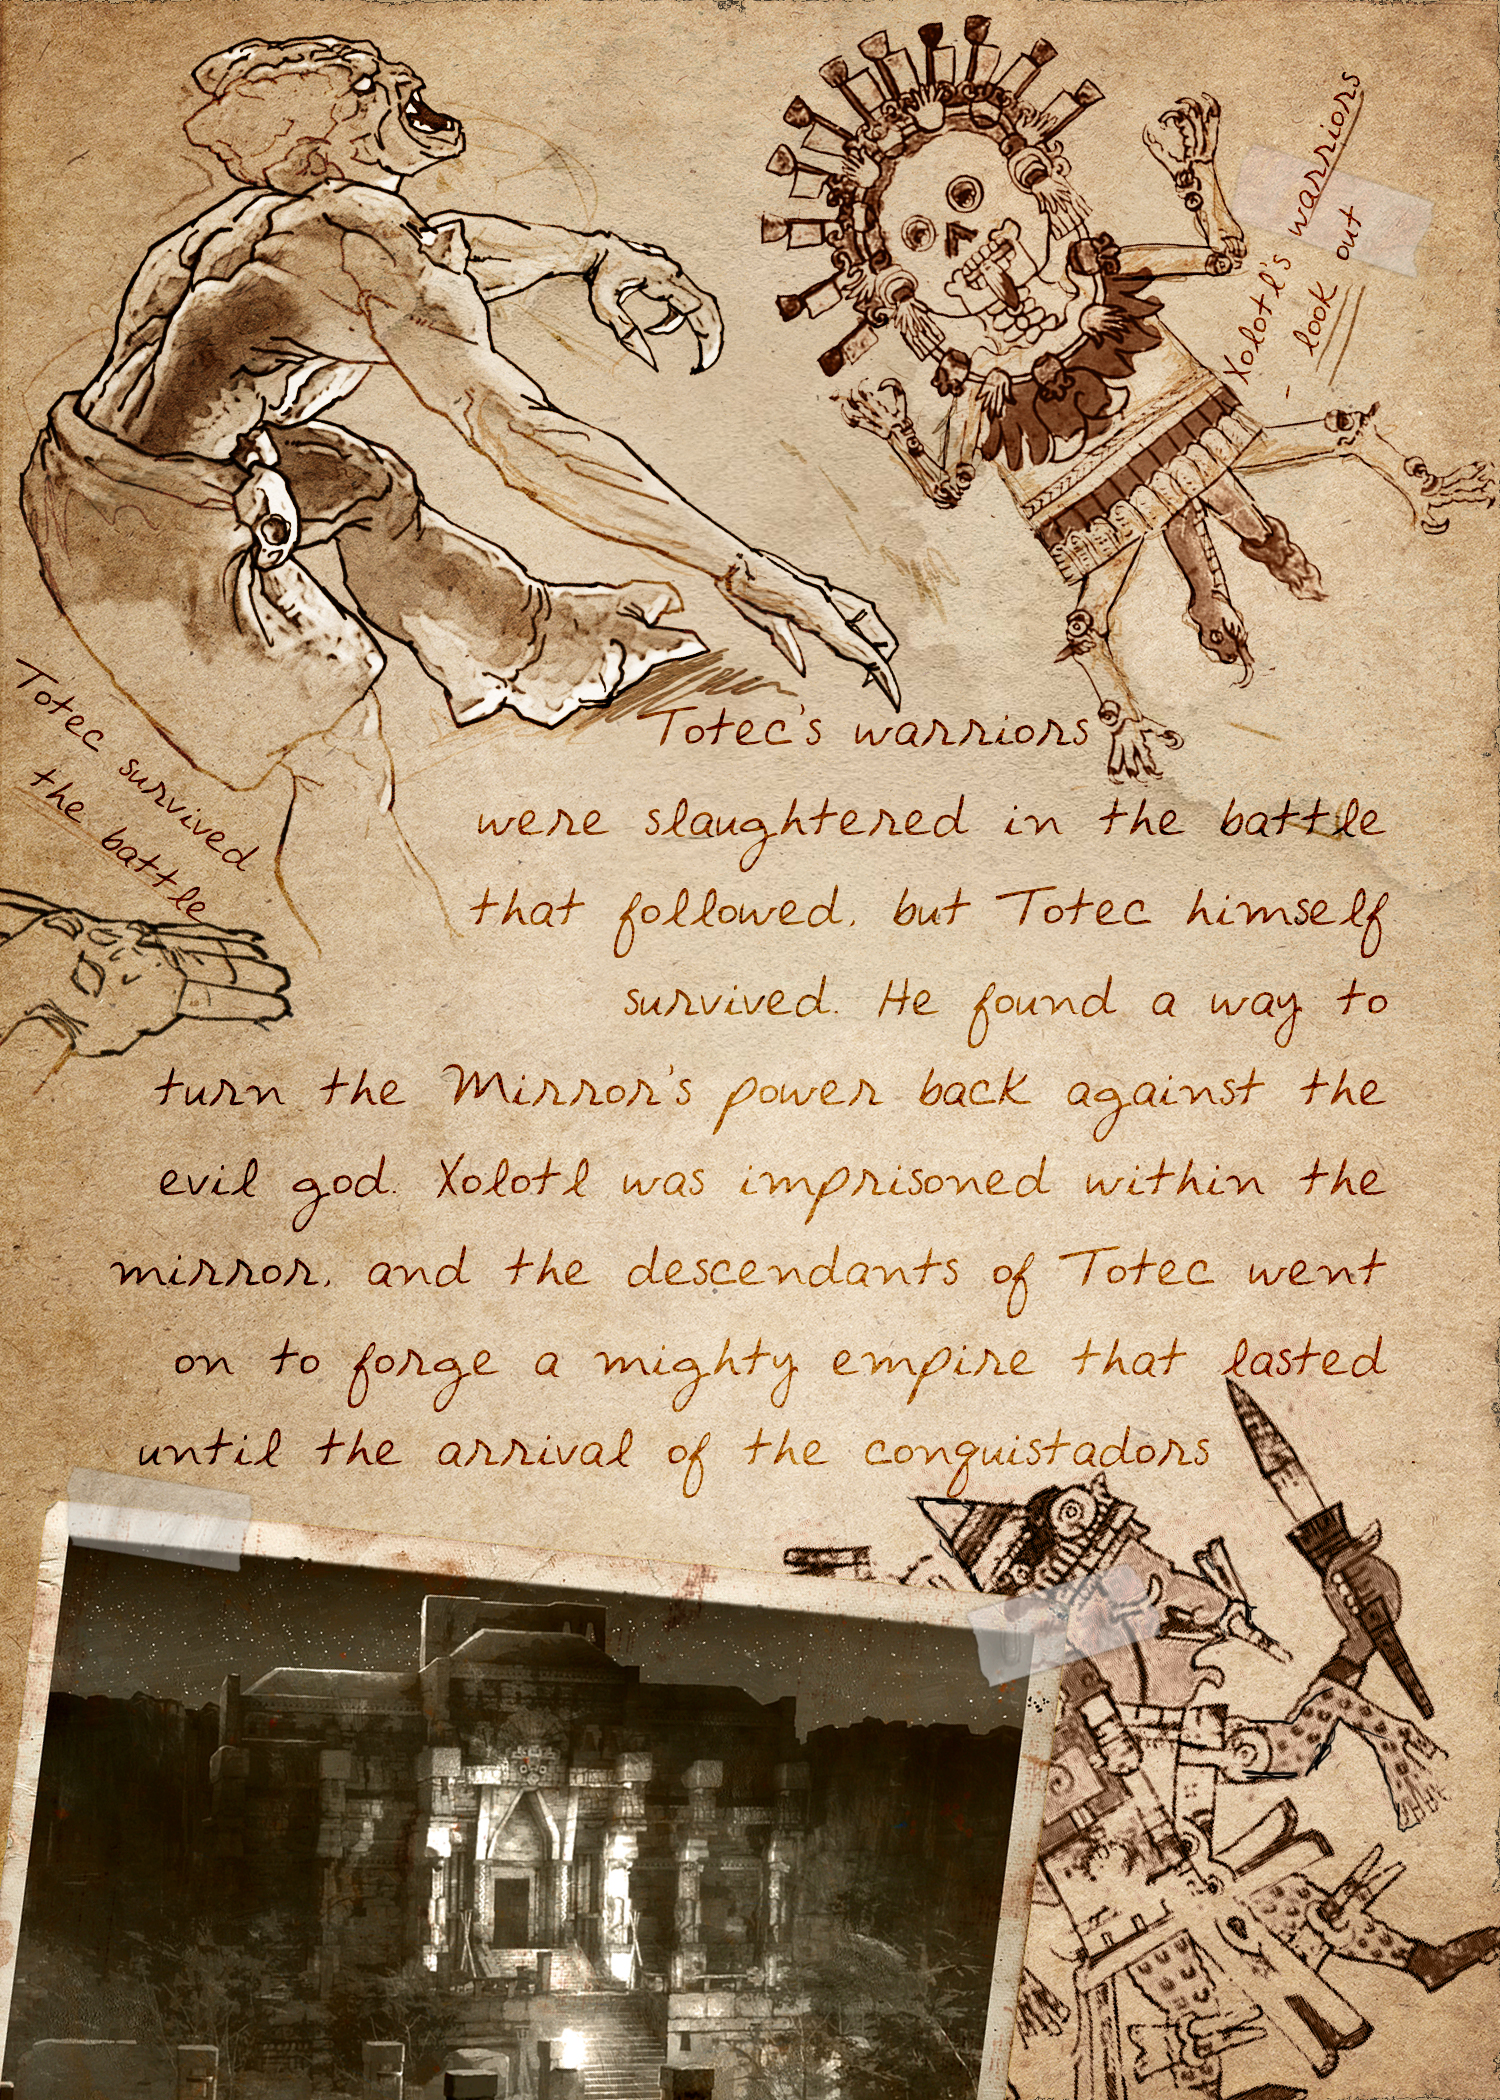 Xolotl's warriors
- look out
Totec survived
the battle
Totec's warriors
were slaughtered in the battle
that followed, but Totec himself
survived. He found a way to
turn the Mirror's power back against the
evil god. Xolotl was imprisoned within the
mirror, and the descendants of Totec went
on to forge a mighty empire that lasted
until the arrival of the conquistadors